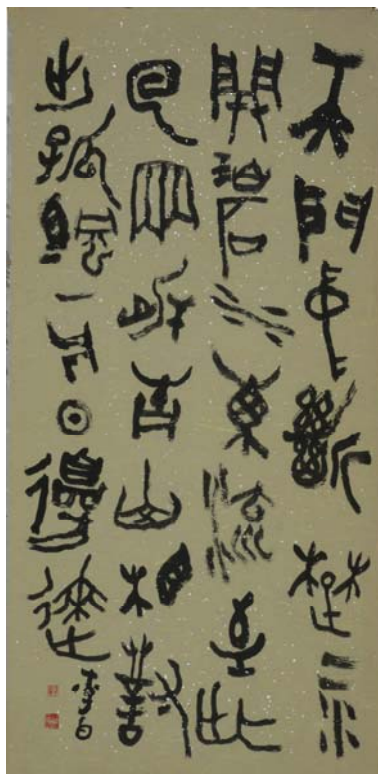 天門中斷楚江
開碧水東流至此
回兩岸青山相對
出孤帆一片日邊來
李白